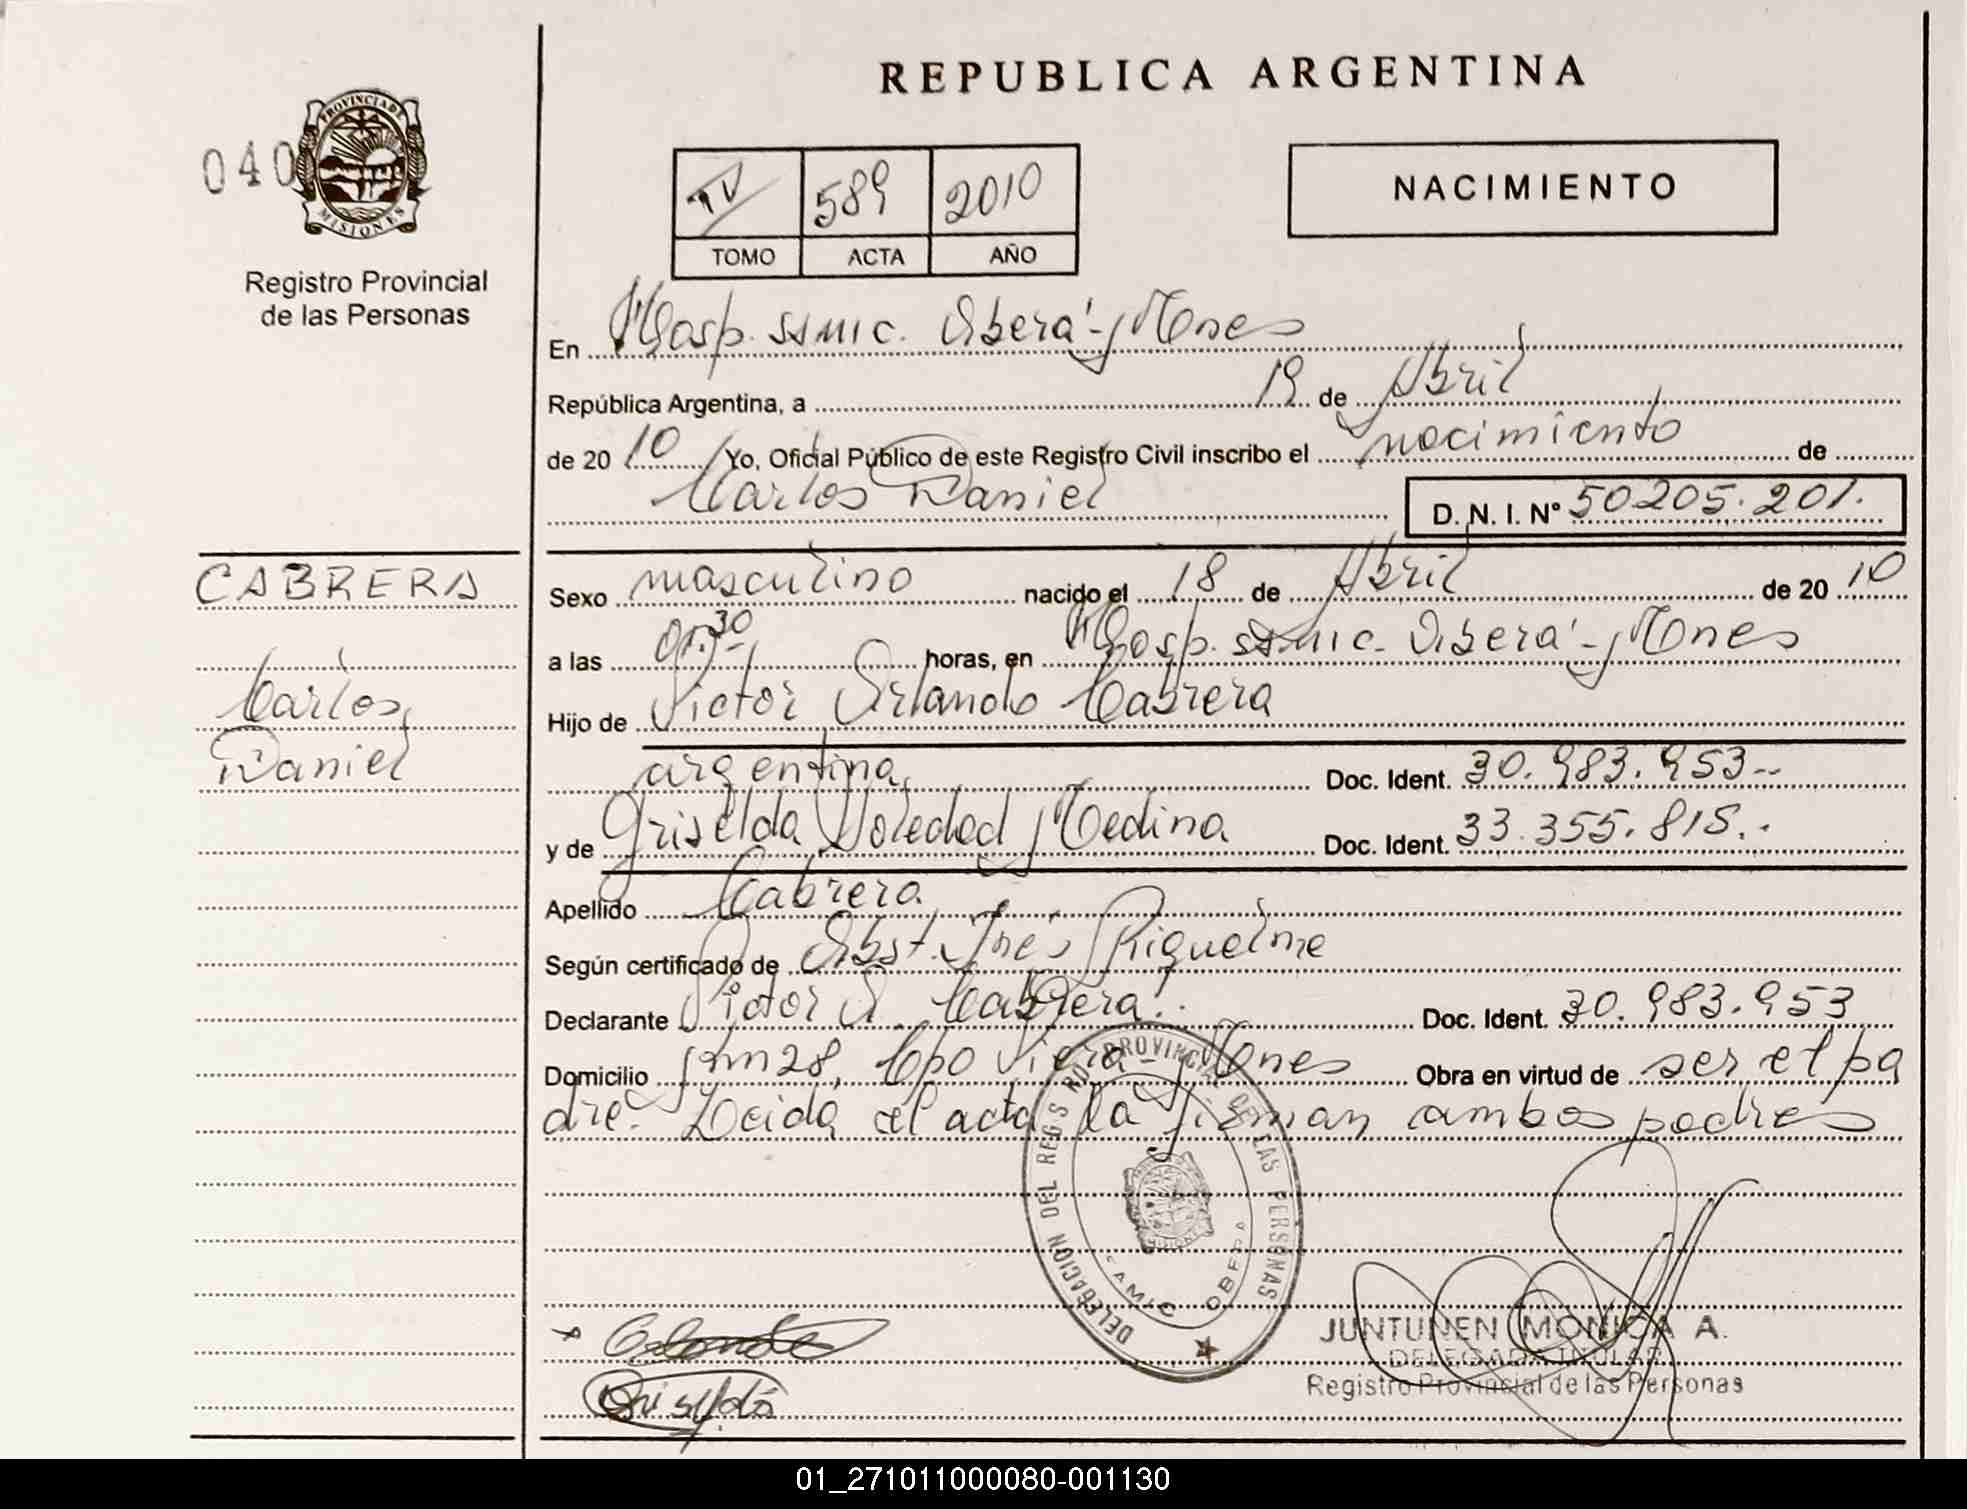 REPUBLICA ARGENTINA
040
PROVINCIA DE
MISIONES
Registro Provincial
de las Personas
TV 589 2010
TOMO ACTA AÑO
NACIMIENTO
En Hosp. SAMIC. Oberá - Mnes
República Argentina, a 19 de Abril
de 2010 Yo, Oficial Público de este Registro Civil inscribo el nacimiento de
Carlos Daniel
D. N. I. Nº 50205.201.
CABRERA
Carlos
Daniel
Sexo masculino nacido el 18 de Abril de 2010
a las horas, en Hosp. SAMIC. Oberá - Mnes
Hijo de Victor Orlando Cabrera
argentina Doc. Ident. 30.983.953--
y de Griselda Soledad Medina Doc. Ident. 33.355.818..
Apellido Cabrera
Según certificado de Obst. Inés Riquelme
Declarante Victor O. Cabrera. Doc. Ident. 30.983.953
Domicilio Km 28, Cpo Viera - Mnes Obra en virtud de ser el pa
dre. Leida el acta la firman ambos padres
DELEGACION DEL REGISTRO PROVINCIAL DE LAS PERSONAS
SAMIC OBERA
MISIONES
JUNTUNEN MONICA A.
DELEGADA TITULAR
Registro Provincial de las Personas
01_271011000080-001130